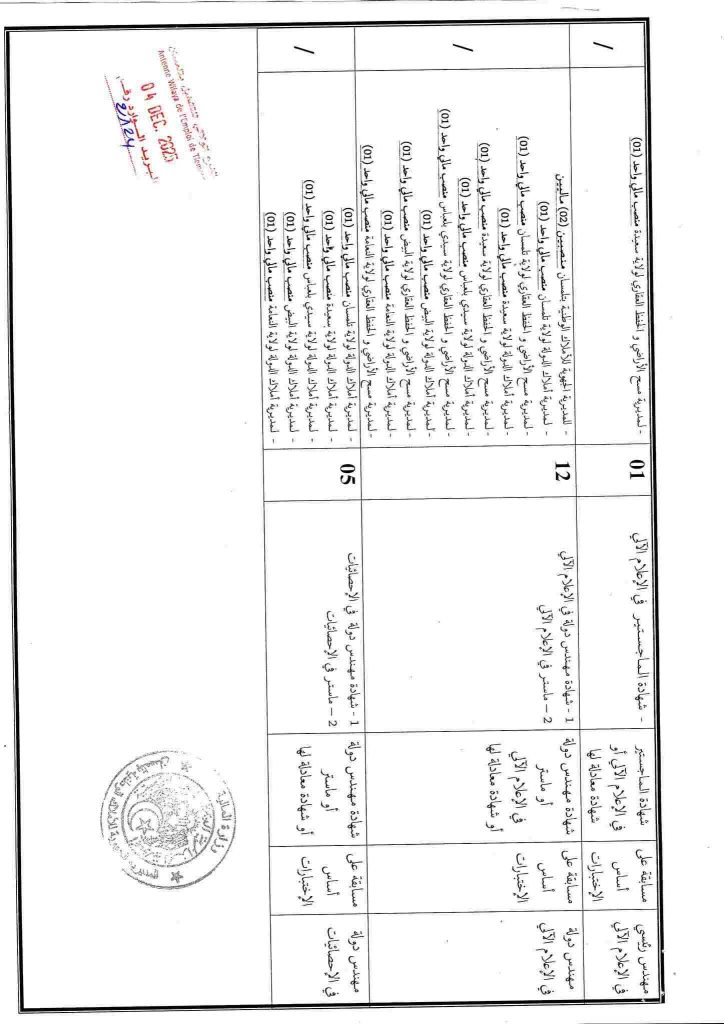 مهندس رئيسي
في الإعلام الآلي
مسابقة على
أساس
الإختبارات
شهادة الماجستير
في الإعلام الآلي أو
شهادة معادلة لها
- شهادة الماجستير في الإعلام الآلي
01
- لمديرية مسح الأراضي و الحفظ العقاري لولاية سعيدة منصب مالي واحد (01)
/
مهندس دولة
في الإعلام الآلي
مسابقة على
أساس
الإختبارات
شهادة مهندس دولة
أو ماستر
في الإعلام الآلي
أو شهادة معادلة لها
1 - شهادة مهندس دولة في الإعلام الآلي
2 – ماستر في الإعلام الآلي
12
- للمديرية الجهوية للأملاك الوطنية بتلمسان منصبين (02) ماليين
- لمديرية أملاك الدولة لولاية تلمسان منصب مالي واحد (01)
- لمديرية مسح الأراضي و الحفظ العقاري لولاية تلمسان منصب مالي واحد (01)
- لمديرية أملاك الدولة لولاية سعيدة منصب مالي واحد (01)
- لمديرية مسح الأراضي و الحفظ العقاري لولاية سعيدة منصب مالي واحد (01)
- لمديرية أملاك الدولة لولاية سيدي بلعباس منصب مالي واحد (01)
- لمديرية مسح الأراضي و الحفظ العقاري لولاية سيدي بلعباس منصب مالي واحد (01)
- لمديرية أملاك الدولة لولاية البيض منصب مالي واحد (01)
- لمديرية مسح الأراضي و الحفظ العقاري لولاية البيض منصب مالي واحد (01)
- لمديرية أملاك الدولة لولاية النعامة منصب مالي واحد (01)
- لمديرية مسح الأراضي و الحفظ العقاري لولاية النعامة منصب مالي واحد (01)
/
مهندس دولة
في الإحصائيات
مسابقة على
أساس
الإختبارات
شهادة مهندس دولة
أو ماستر
أو شهادة معادلة لها
1 - شهادة مهندس دولة في الإحصائيات
2 – ماستر في الإحصائيات
05
- لمديرية أملاك الدولة لولاية تلمسان منصب مالي واحد (01)
- لمديرية أملاك الدولة لولاية سعيدة منصب مالي واحد (01)
- لمديرية أملاك الدولة لولاية سيدي بلعباس منصب مالي واحد (01)
- لمديرية أملاك الدولة لولاية البيض منصب مالي واحد (01)
- لمديرية أملاك الدولة لولاية النعامة منصب مالي واحد (01)
/
Antenne Wilaya de l'Emploi de
04 DEC. 2025
البريد الوارد رقم
وزارة المالية